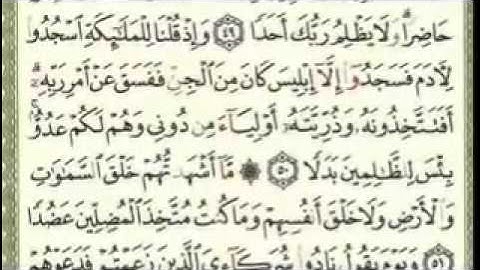 حَاضِرًا وَلَا يَظْلِمُ رَبُّكَ أَحَدًا ٤٩ وَإِذْ قُلْنَا لِلْمَلَٰٓئِكَةِ ٱسْجُدُوا۟
لِـَٔادَمَ فَسَجَدُوٓا۟ إِلَّآ إِبْلِيسَ كَانَ مِنَ ٱلْجِنِّ فَفَسَقَ عَنْ أَمْرِ رَبِّهِۦٓ
أَفَتَتَّخِذُونَهُۥ وَذُرِّيَّتَهُۥٓ أَوْلِيَآءَ مِن دُونِى وَهُمْ لَكُمْ عَدُوٌّۢ
بِئْسَ لِلظَّٰلِمِينَ بَدَلًا ٥٠ ۞ مَّآ أَشْهَدتُّهُمْ خَلْقَ ٱلسَّمَٰوَٰتِ
وَٱلْأَرْضِ وَلَا خَلْقَ أَنفُسِهِمْ وَمَا كُنتُ مُتَّخِذَ ٱلْمُضِلِّينَ عَضُدًا
٥١ وَيَوْمَ يَقُولُ نَادُوا۟ شُرَكَآءِىَ ٱلَّذِينَ زَعَمْتُمْ فَدَعَوْهُمْ